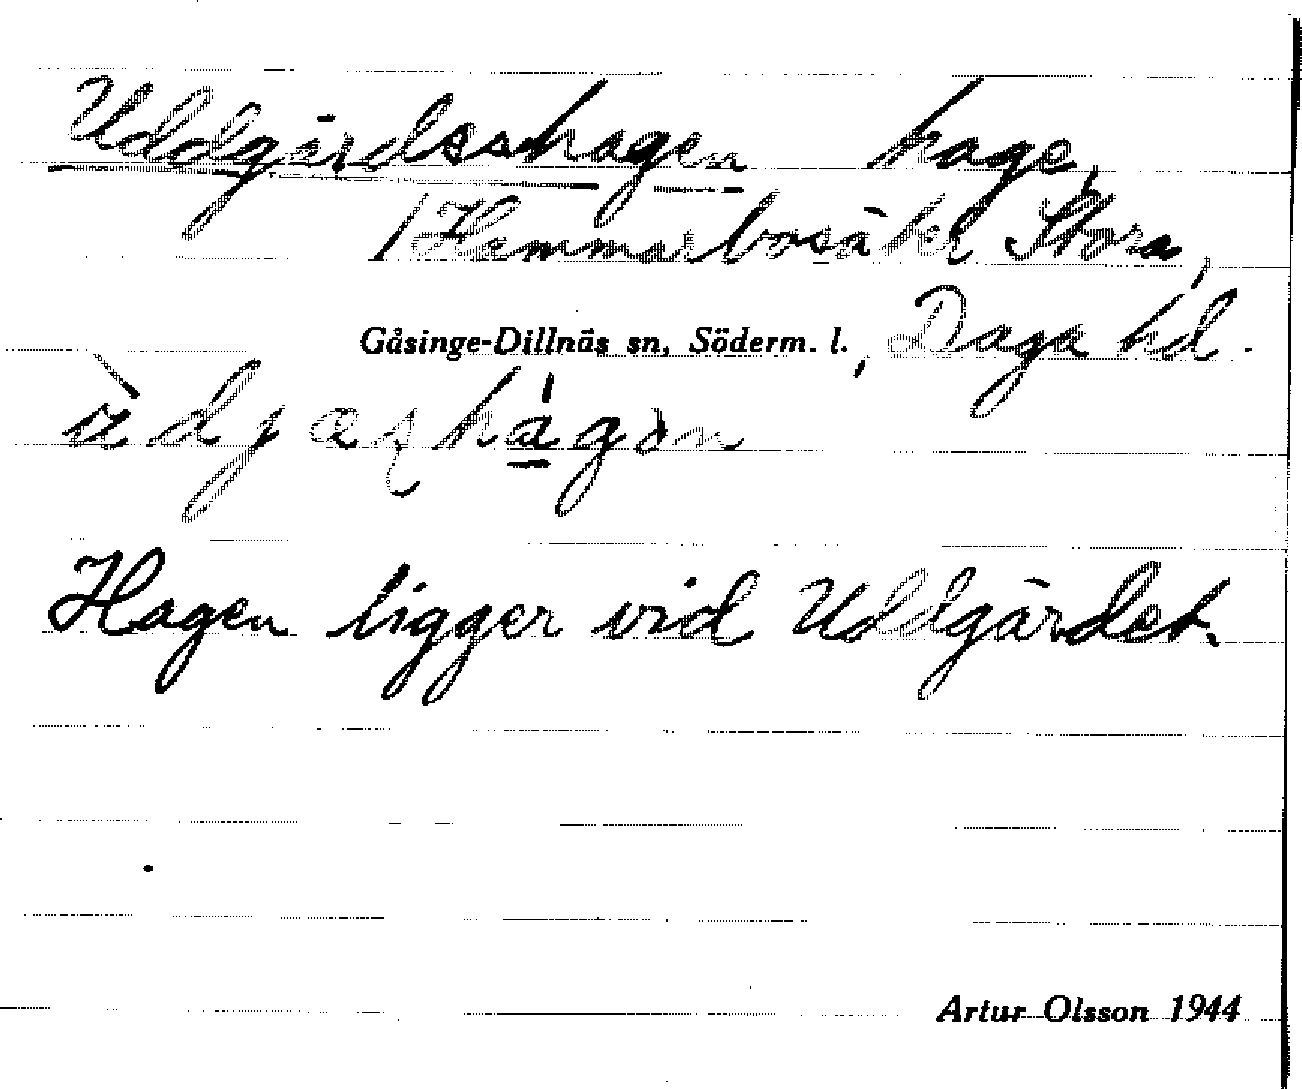 Uddgärdsshagen hage,
/Hammarbosäkt Stora,
Gåsinge-Dillnäs sn, Söderm. l., Daga hd.
Hagen ligger vid Uddgärdet.
Artur Olsson 1944